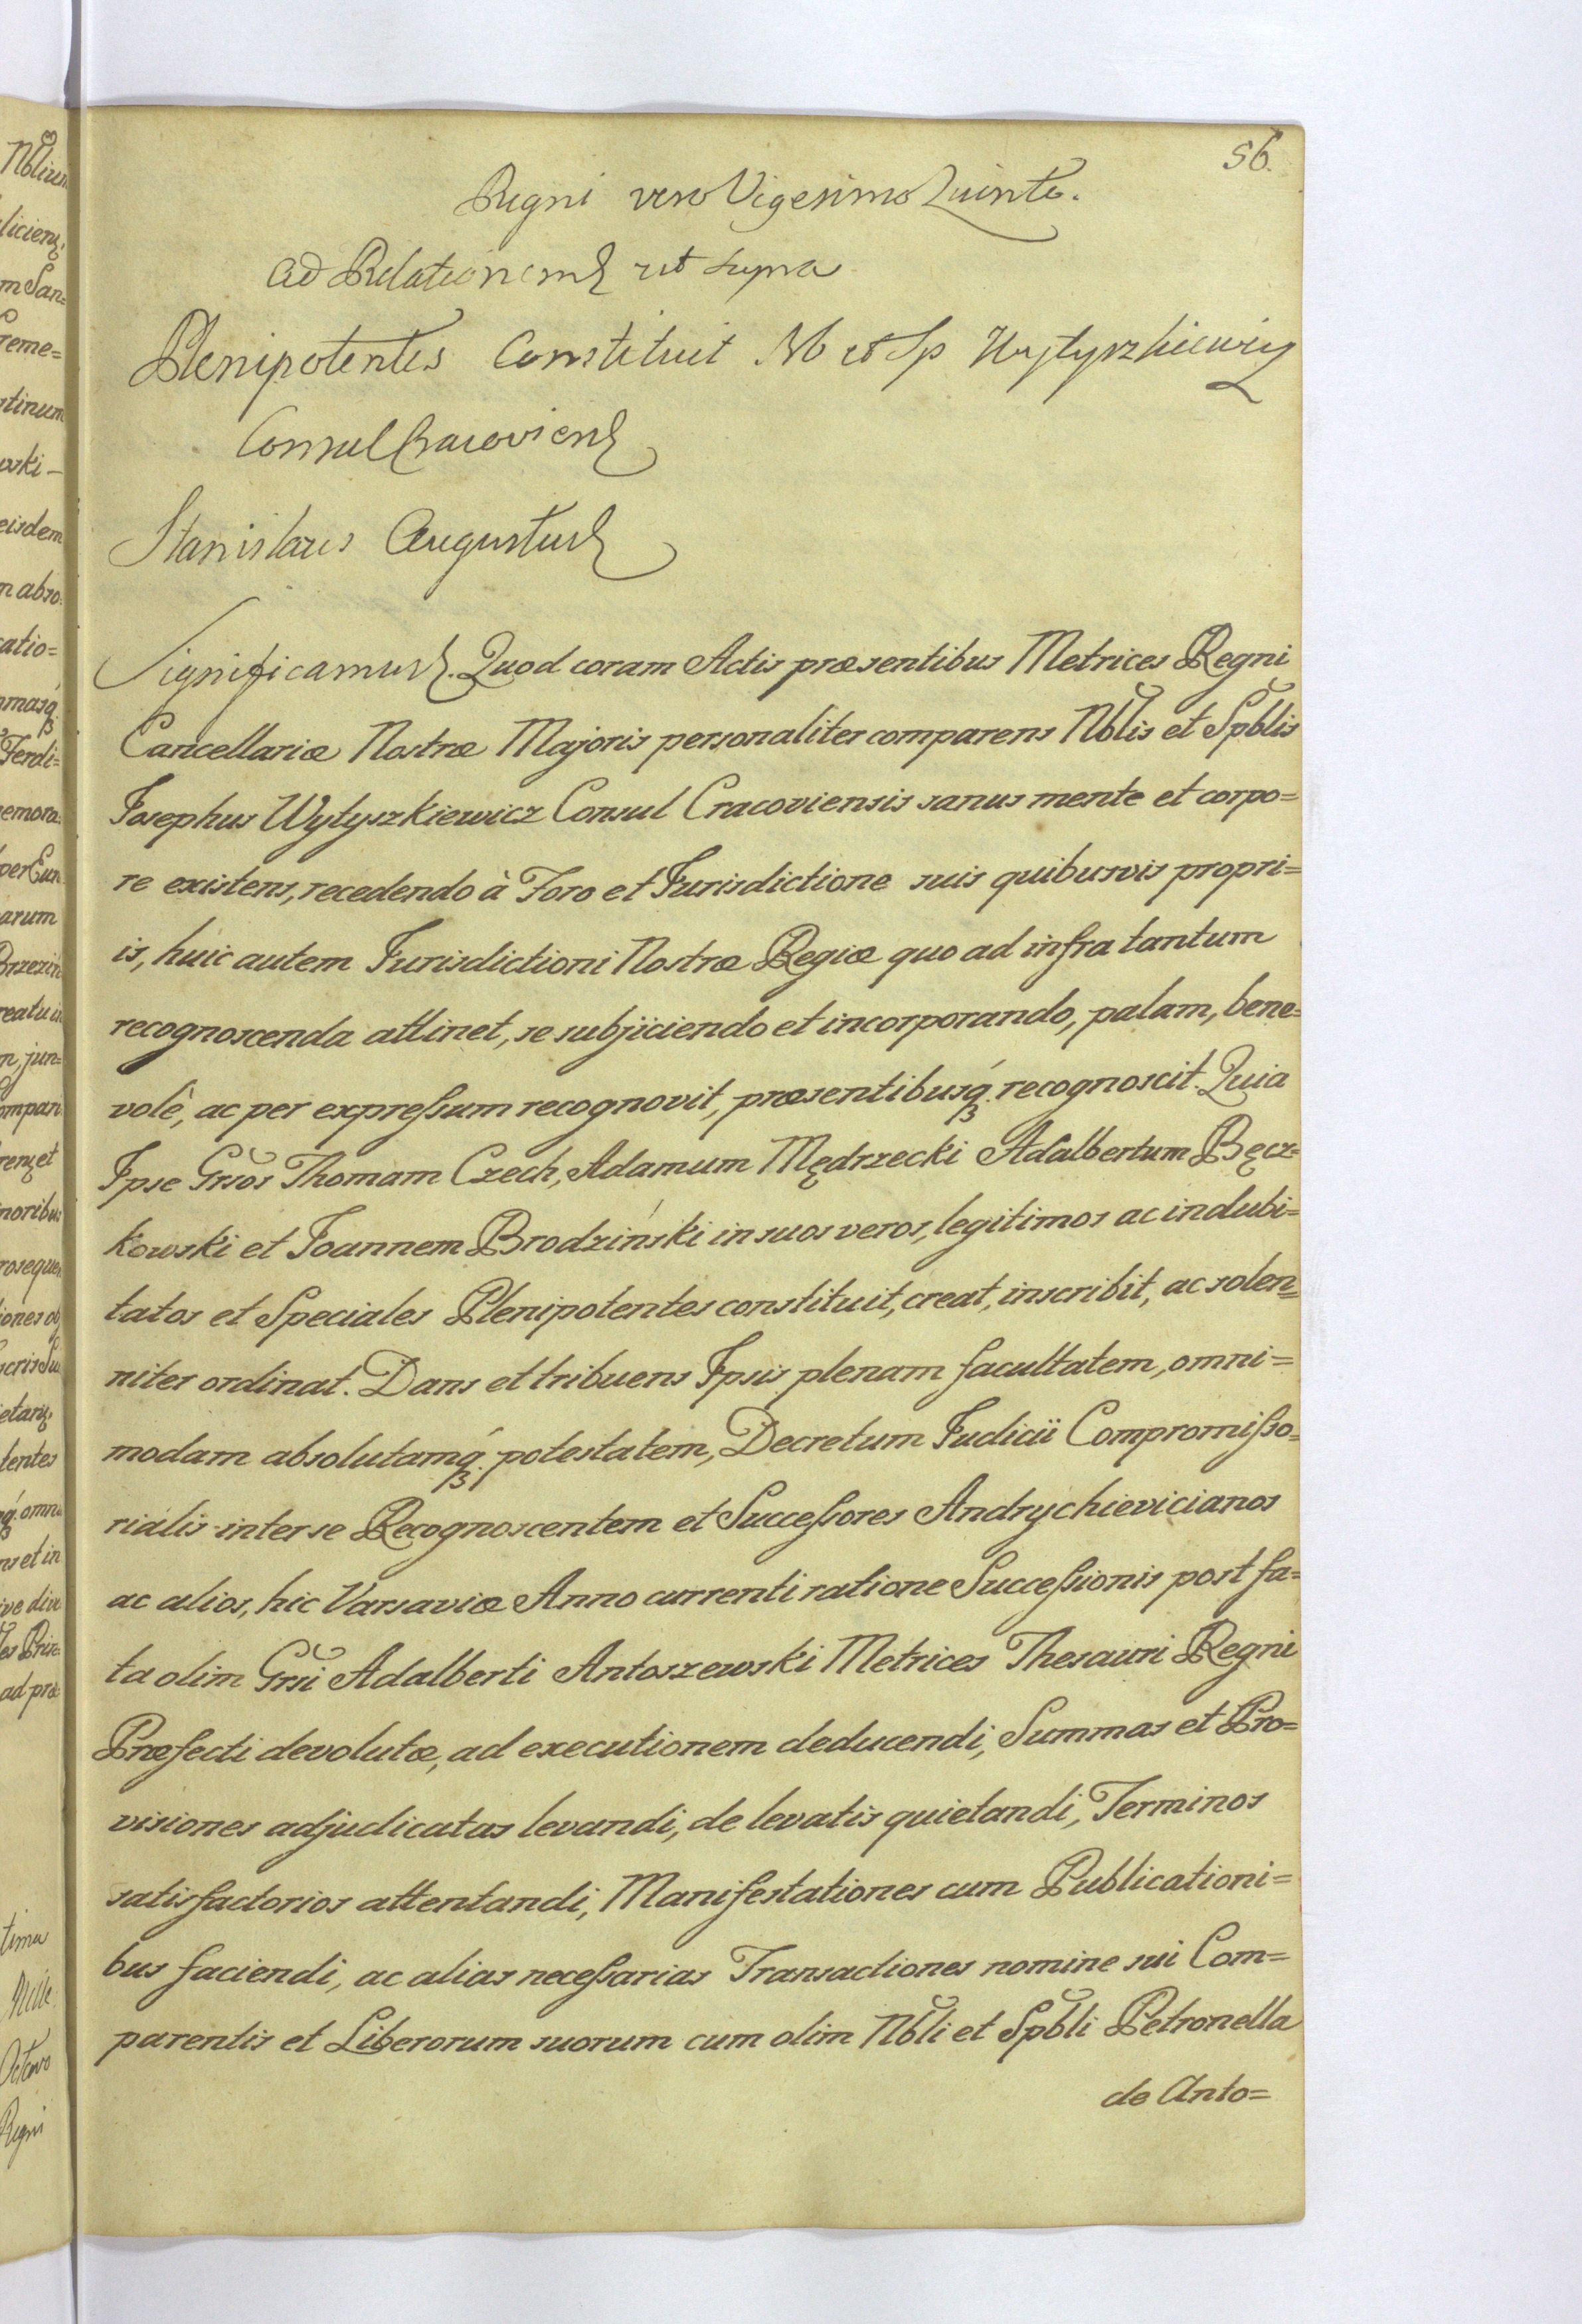 56.
Regni vero Vigesimo Quinto.
Ad Relationem ut supra
Plenipotentes Constituit Nb et Sp Wytyszkiewicz
Consul Cracoviens
Stanislaus Augustus
Significamus. Quod coram Actis præsentibus Metrices Regni
Cancellariæ Nostræ Majoris personaliter comparens Nblis et Spblis
Josephus Wytyszkiewicz Consul Cracoviensis sanus mente et corpo=
re existens, recedendo à Foro et Jurisdictione suis quibusvis propri=
is, huic autem Jurisdictioni Nostræ Regiæ quo ad infra tantum
recognoscenda attinet, se subjiciendo et incorporando, palam, bene=
volè, ac per expreſsum recognovit, præsentibusq́ꝫ recognoscit. Quia
Ipse Grsos Thomam Czech, Adamum Mędrzecki Adalbertum Bęcz=
kowski et Joannem Brodziński in suos veros, legitimos ac indubi=
tatos et Speciales Plenipotentes constituit, creat, inscribit, ac solen=
niter ordinat. Dans et tribuens Ipsis plenam facultatem, omni=
modam absolutamq́ꝫ potestatem, Decretum Judicii Compromiſso=
rialis inter se Recognoscentem et Succeſsores Andrychievicianos
ac alios, hic Varsaviæ Anno currenti ratione Succeſsionis post fa=
ta olim Grsi Adalberti Antoszewski Metrices Thesauri Regni
Præfecti devolutæ, ad executionem deducendi, Summas et Pro=
visiones adjudicatas levandi, de levatis quietandi, Terminos
satisfactorios attentandi, Manifestationes cum Publicationi=
bus faciendi, ac alias neceſsarias Transactiones nomine sui Com=
parentis et Liberorum suorum cum olim Nbli et Spbli Petronella
de Anto=